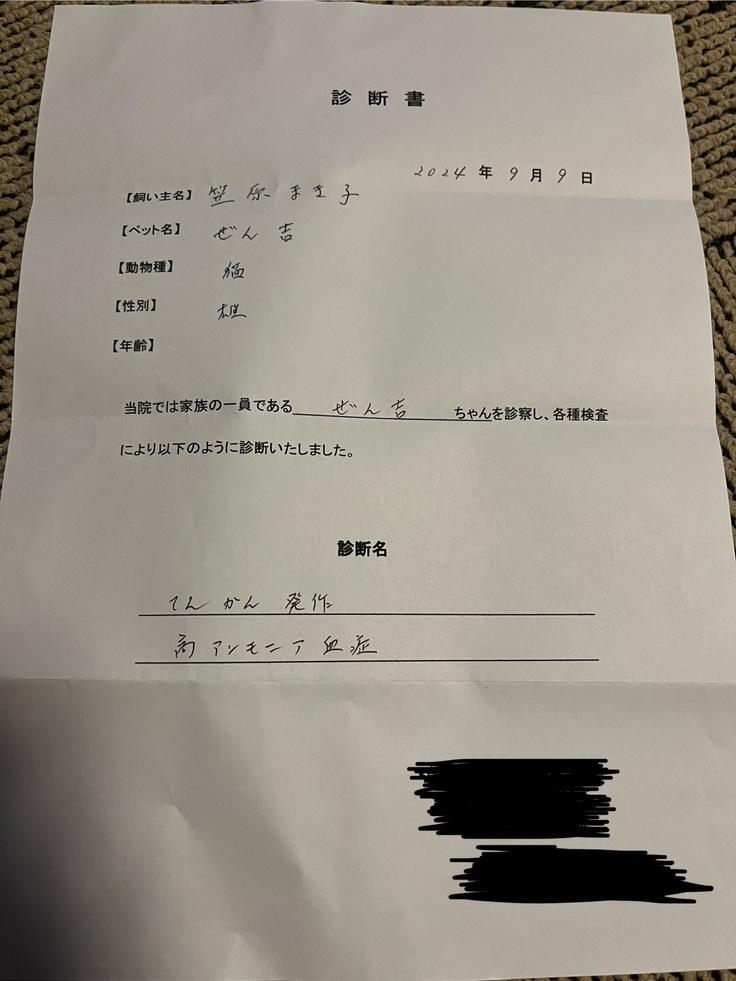 診断書
2024年9月9日
【飼い主名】 笠原まき子
【ペット名】 ぜん吉
【動物種】 猫
【性別】 雄
【年齢】
当院では家族の一員である ぜん吉 ちゃんを診察し、各種検査
により以下のように診断いたしました。
診断名
てんかん発作
高アンモニア血症